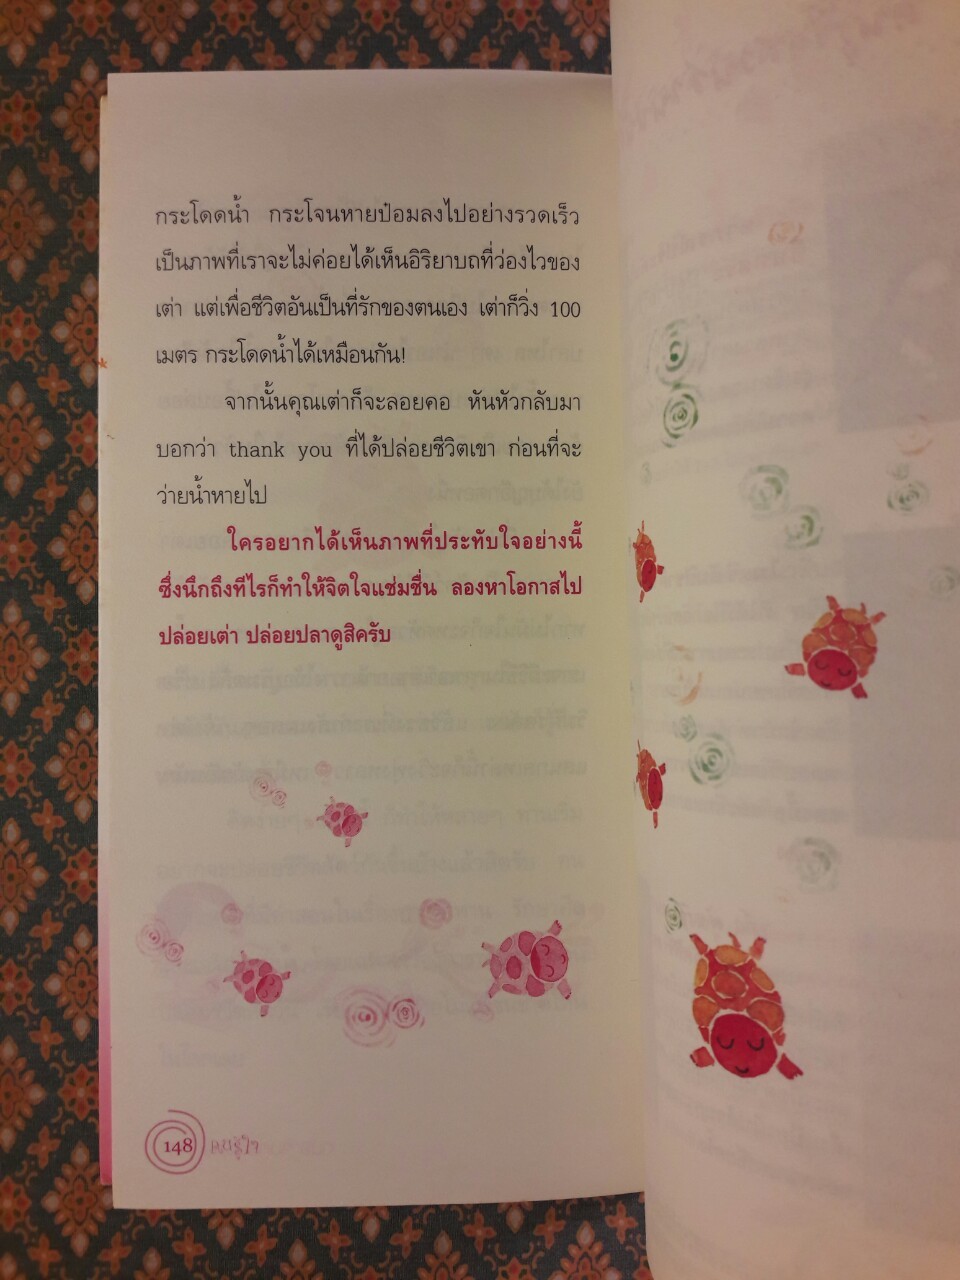 กระโดดน้ำ กระโจนหายป๋อมลงไปอย่างรวดเร็ว
เป็นภาพที่เราจะไม่ค่อยได้เห็นอิริยาบถที่ว่องไวของ
เต่า แต่เพื่อชีวิตอันเป็นที่รักของตนเอง เต่าก็วิ่ง 100
เมตร กระโดดน้ำได้เหมือนกัน!
จากนั้นคุณเต่าก็จะลอยคอ หันหัวกลับมา
บอกว่า thank you ที่ได้ปล่อยชีวิตเขา ก่อนที่จะ
ว่ายน้ำหายไป
ใครอยากได้เห็นภาพที่ประทับใจอย่างนี้
ซึ่งนึกถึงทีไรก็ทำให้จิตใจแช่มชื่น ลองหาโอกาสไป
ปล่อยเต่า ปล่อยปลาดูสิครับ
148